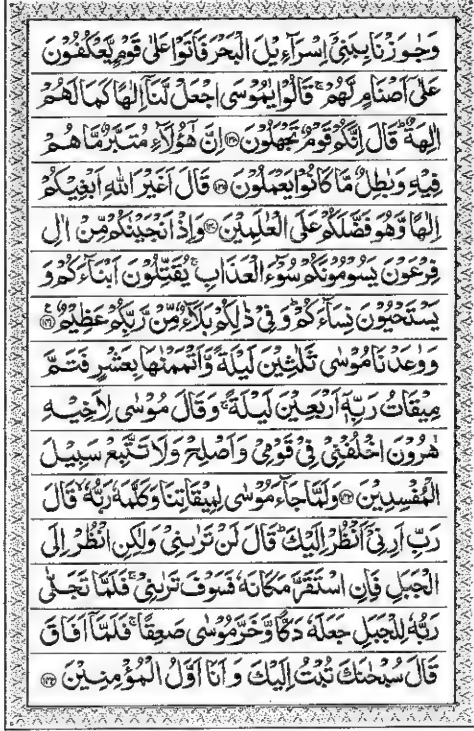 وَجٰوَزۡنَا بِبَنِیۡۤ اِسۡرَآءِیۡلَ الۡبَحۡرَ فَاَتَوۡا عَلٰی قَوۡمٍ یَّعۡکُفُوۡنَ
عَلٰۤی اَصۡنَامٍ لَّهُمۡ ۚ قَالُوۡا یٰمُوۡسَی اجۡعَلۡ لَّنَاۤ اِلٰهًا کَمَا لَهُمۡ
اٰلِهَةٌ ؕ قَالَ اِنَّکُمۡ قَوۡمٌ تَجۡهَلُوۡنَ ﴿۱۳۸﴾ اِنَّ هٰۤؤُلَآءِ مُتَبَّرٌ مَّا هُمۡ
فِیۡهِ وَبٰطِلٌ مَّا کَانُوۡا یَعۡمَلُوۡنَ ﴿۱۳۹﴾ قَالَ اَغَیۡرَ اللّٰهِ اَبۡغِیۡکُمۡ
اِلٰهًا وَّهُوَ فَضَّلَکُمۡ عَلَی الۡعٰلَمِیۡنَ ﴿۱۴۰﴾ وَاِذۡ اَنۡجَیۡنٰکُمۡ مِّنۡ اٰلِ
فِرۡعَوۡنَ یَسُوۡمُوۡنَکُمۡ سُوۡٓءَ الۡعَذَابِ ۚ یُقَتِّلُوۡنَ اَبۡنَآءَکُمۡ وَ
یَسۡتَحۡیُوۡنَ نِسَآءَکُمۡ ؕ وَفِیۡ ذٰلِکُمۡ بَلَآءٌ مِّنۡ رَّبِّکُمۡ عَظِیۡمٌ ﴿۱۴۱﴾ ع
وَوٰعَدۡنَا مُوۡسٰی ثَلٰثِیۡنَ لَیۡلَةً وَّاَتۡمَمۡنٰهَا بِعَشۡرٍ فَتَمَّ
مِیۡقَاتُ رَبِّهٖۤ اَرۡبَعِیۡنَ لَیۡلَةً ۚ وَقَالَ مُوۡسٰی لِاَخِیۡهِ
هٰرُوۡنَ اخۡلُفۡنِیۡ فِیۡ قَوۡمِیۡ وَاَصۡلِحۡ وَلَا تَتَّبِعۡ سَبِیۡلَ
الۡمُفۡسِدِیۡنَ ﴿۱۴۲﴾ وَلَمَّا جَآءَ مُوۡسٰی لِمِیۡقَاتِنَا وَکَلَّمَهٗ رَبُّهٗ ۙ قَالَ
رَبِّ اَرِنِیۡۤ اَنۡظُرۡ اِلَیۡکَ ؕ قَالَ لَنۡ تَرٰىنِیۡ وَلٰکِنِ انۡظُرۡ اِلَی
الۡجَبَلِ فَاِنِ اسۡتَقَرَّ مَکَانَهٗ فَسَوۡفَ تَرٰىنِیۡ ۚ فَلَمَّا تَجَلّٰی
رَبُّهٗ لِلۡجَبَلِ جَعَلَهٗ دَکًّا وَّخَرَّ مُوۡسٰی صَعِقًا ۚ فَلَمَّاۤ اَفَاقَ
قَالَ سُبۡحٰنَکَ تُبۡتُ اِلَیۡکَ وَاَنَا اَوَّلُ الۡمُؤۡمِنِیۡنَ ﴿۱۴۳﴾